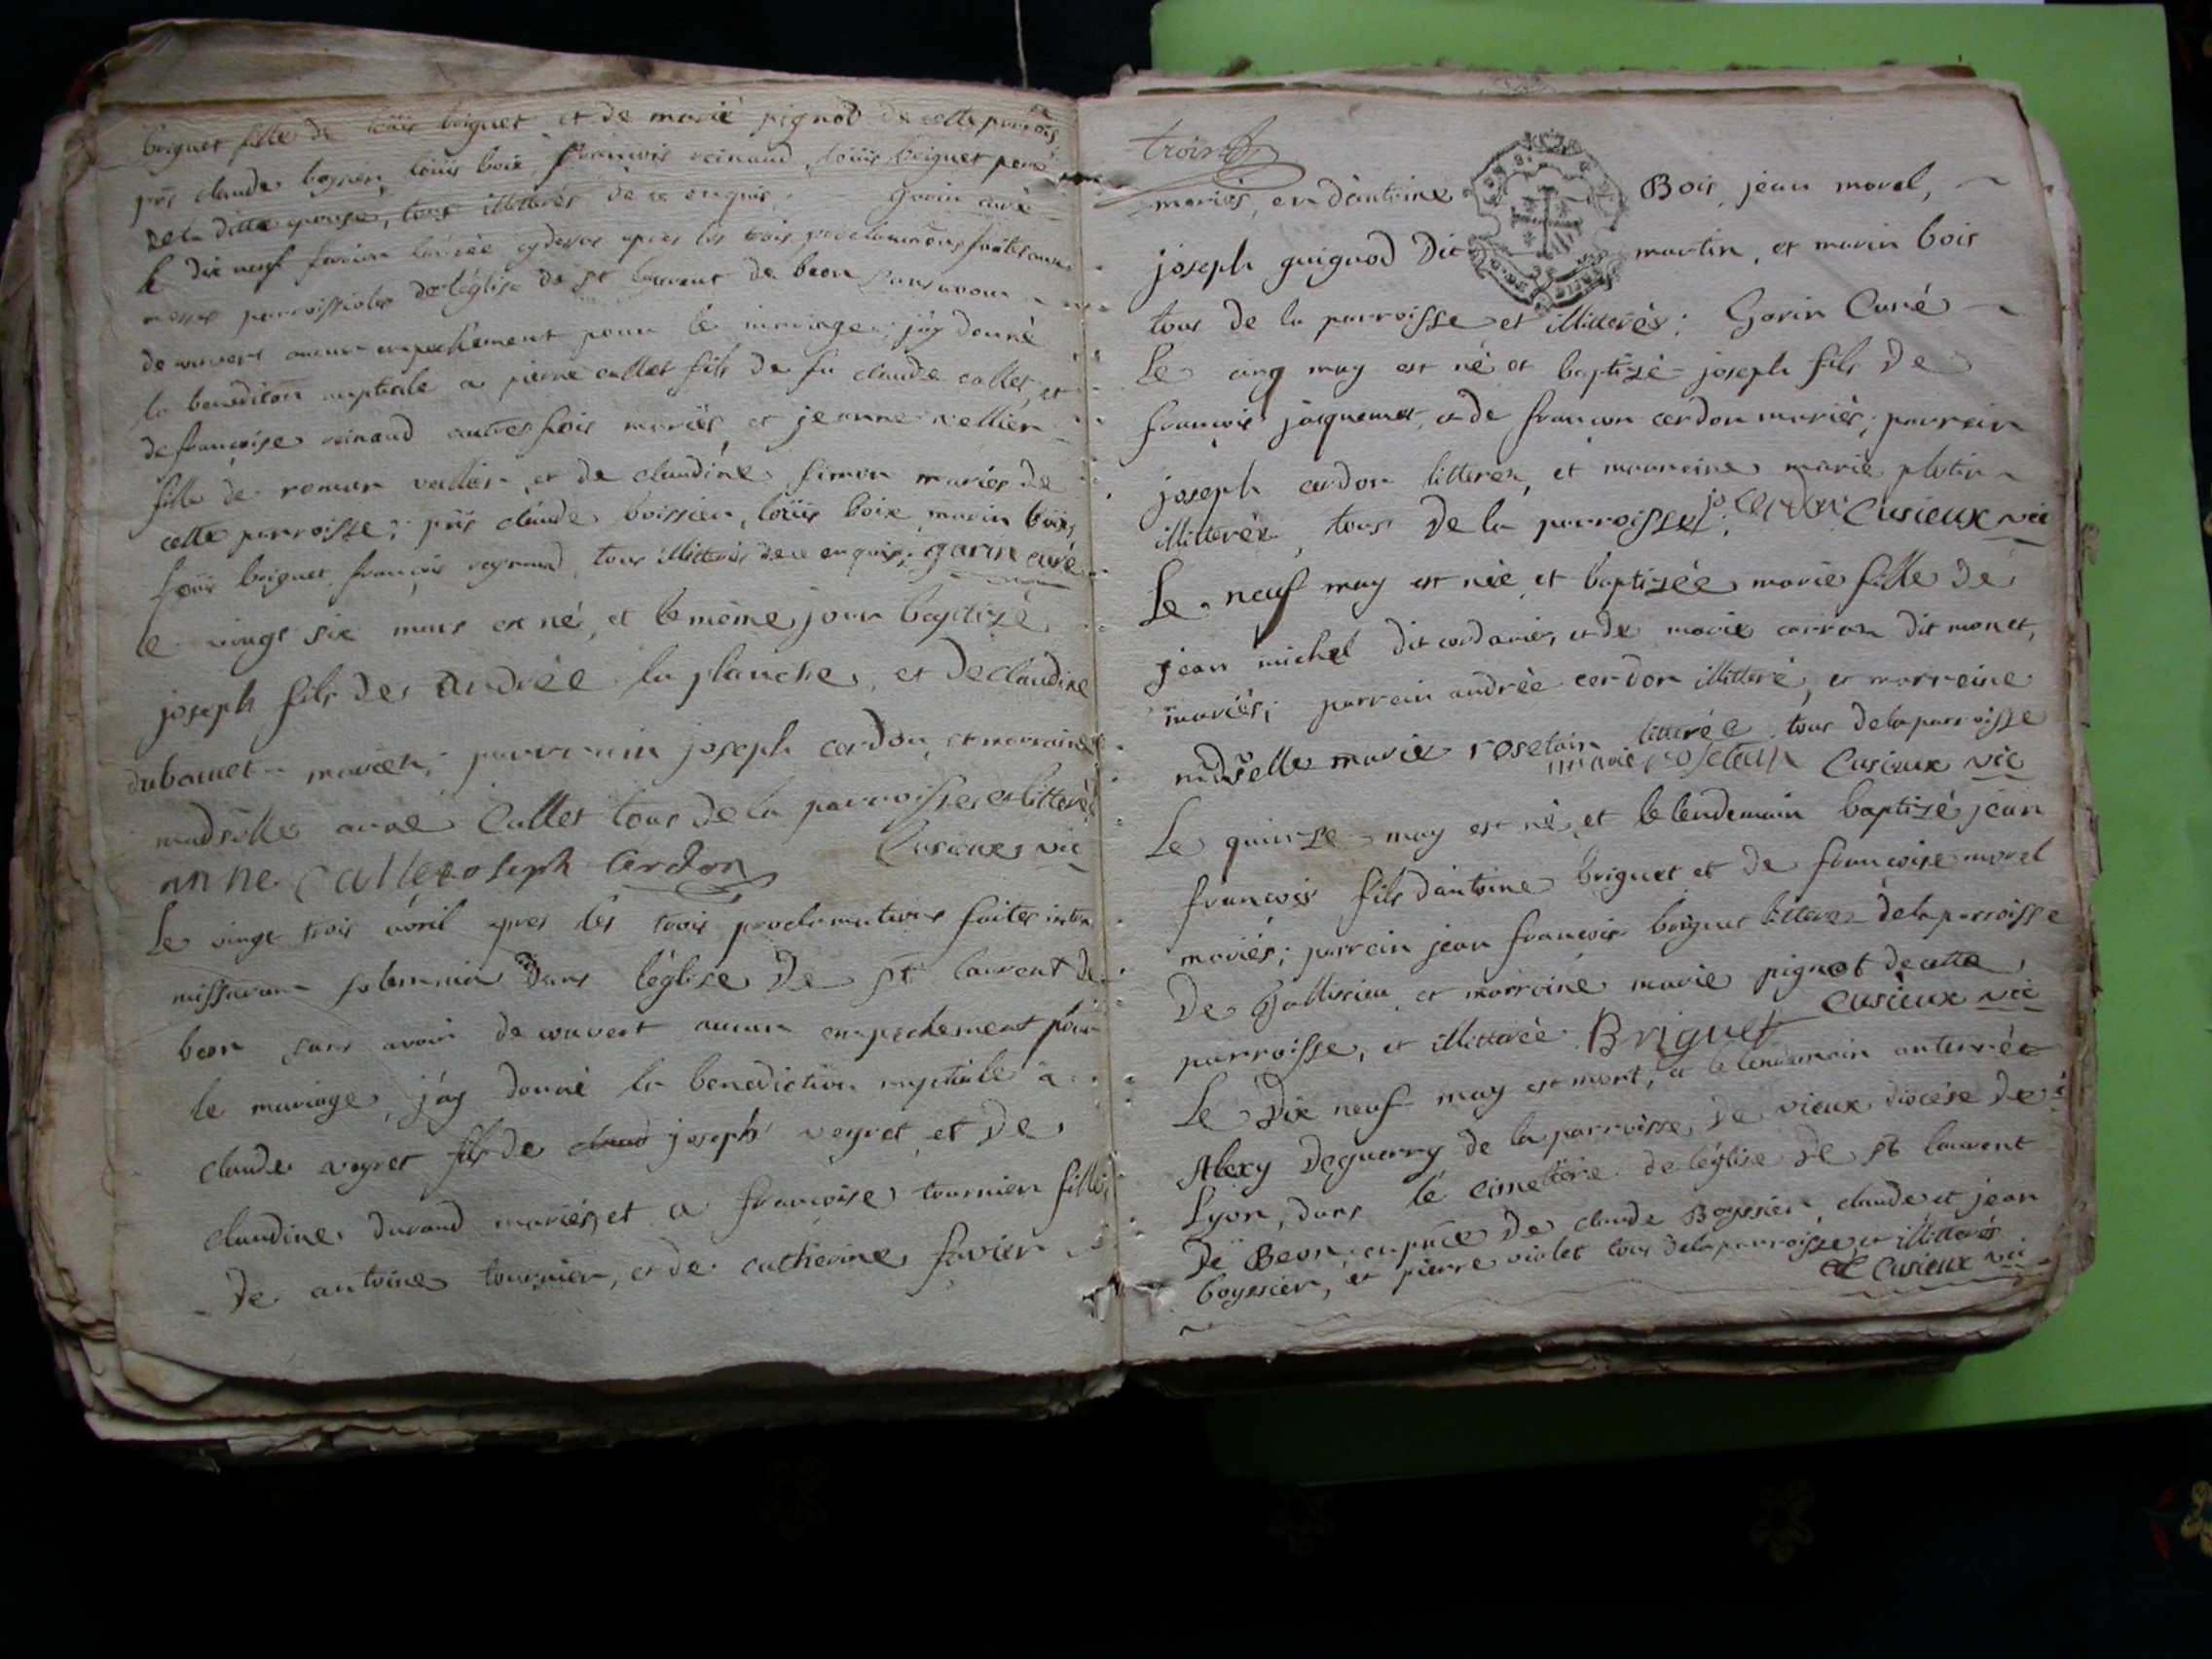 briguet fille de loüis briguet et de marie pignod de cette parrois
pñs claude boyssier, loüis boix, francois reinaud, loüis briguet pere
de la ditte epouse, tous illitterés de ce enquis. garin curé
le dix neuf fevrier année cy dessus apres les trois proclamations faites aux
messes parroissiales de l'église de st laurent de beon sans avoir
decouvert aucun empechement pour le mariage; j'ay donné
la benediction nuptiale a pierre callet fils de fu claude callet, et
de francoise reinaud autres fois mariés, et jeanne vellier
fille de roman vellier, et de claudine simon mariés de
cette parroisse; pñs claude boissier, loüis boix, marin boix,
loüis briguet, francois reynaud, tous illitterés de ce enquis; garin curé
le vingt six mars est né, et le même jour baptizé
joseph fils de andrée la planche, et de claudine
dubouet mariés; parrain joseph cerdon, et marraine
madslle anne Callet tous de la parroisse et litterés
Cusieux vic
anne Callet joseph Cerdon
Le vingt trois avril apres les trois proclamations faites inter
missarum solemnia dans l'église de st laurent de
beon sans avoir decouvert aucun empechement pour
le mariage, j'ay donné la benediction nuptiale a
claude veyret fils de joseph veyret et de
claudine durand mariés, et a francoise tournier fille
de antoine tournier, et de catherine favier
trois
mariés, en d'antoine Bois, jean morel,
joseph guignod dit martin, et marin bois
tous de la parroisse et illitterés; Garin Curé
Le cinq may est né et baptizé joseph fils de
françois jaquemet, et de françon cerdon mariés; parrain
joseph cerdon litteré, et marraine marie plotin
illitterée, tous de la parroisse; jo cerdon Cusieux vic
Le neuf may est née, et baptizée marie fille de
jean michel dit cordarier, et de marie carron dit monet,
mariés; parrain andrée cerdon illitteré, et marreine
madselle marie rosetain litterée tous de la parroisse
marie rosetain Cusieux vic
Le quinze may est né, et le lendemain baptizé jean
françois fils d'antoine briguet et de francoise morel
mariés; parrein jean françois briguet litteré de la parroisse
de Tallissieu, et marreine marie pignot de cette
parroisse, et illitterée. Briguet Cusieux vic
Le dix neuf may est mort, et le lendemain enterré
Alexy deguerry de la parroisse de vieux diocese de
Lyon, dans le cimetiere de l'église de st laurent
De Beon, en pñce de claude Boyssier, claude et jean
boyssier, et pierre violet tous de la parroisse et illitterés
Cusieux vic